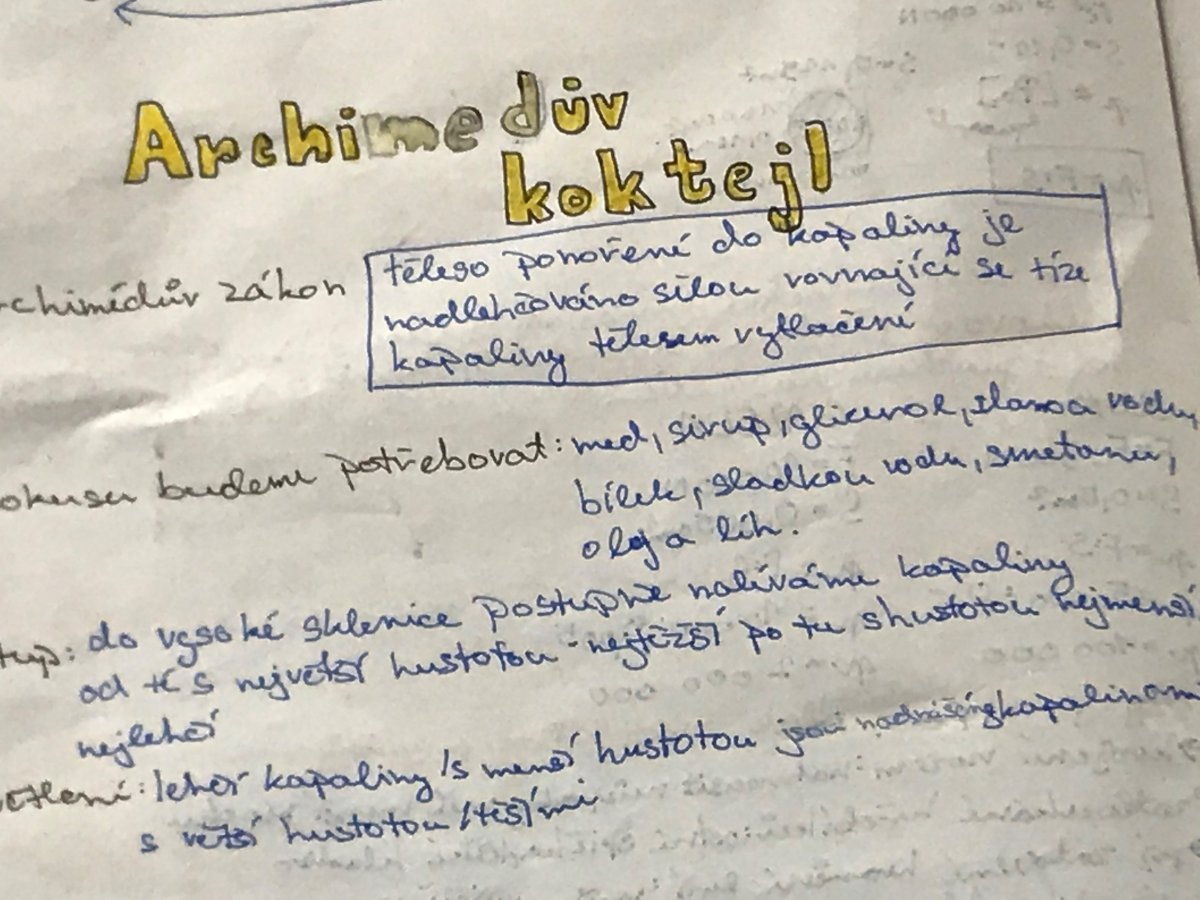 Archimedův
koktejl
rchimédův zákon těleso ponořené do kapaliny je
nadlehčováno silou rovnající se tíze
kapaliny tělesem vytlačení
okusu budeme potřebovat: med, sirup, glicerol, slanou vodu,
bílek, sladkou vodu, smetanu,
olej a líh.
tup: do vysoké sklenice postupně nalíváme kapaliny
od té s největší hustotou - nejtěžší po tu s hustotou nejmenší
nejlehčí
ětlení: lehčí kapaliny /s menší hustotou jsou nadnášeny kapalinami
s větší hustotou /těšími